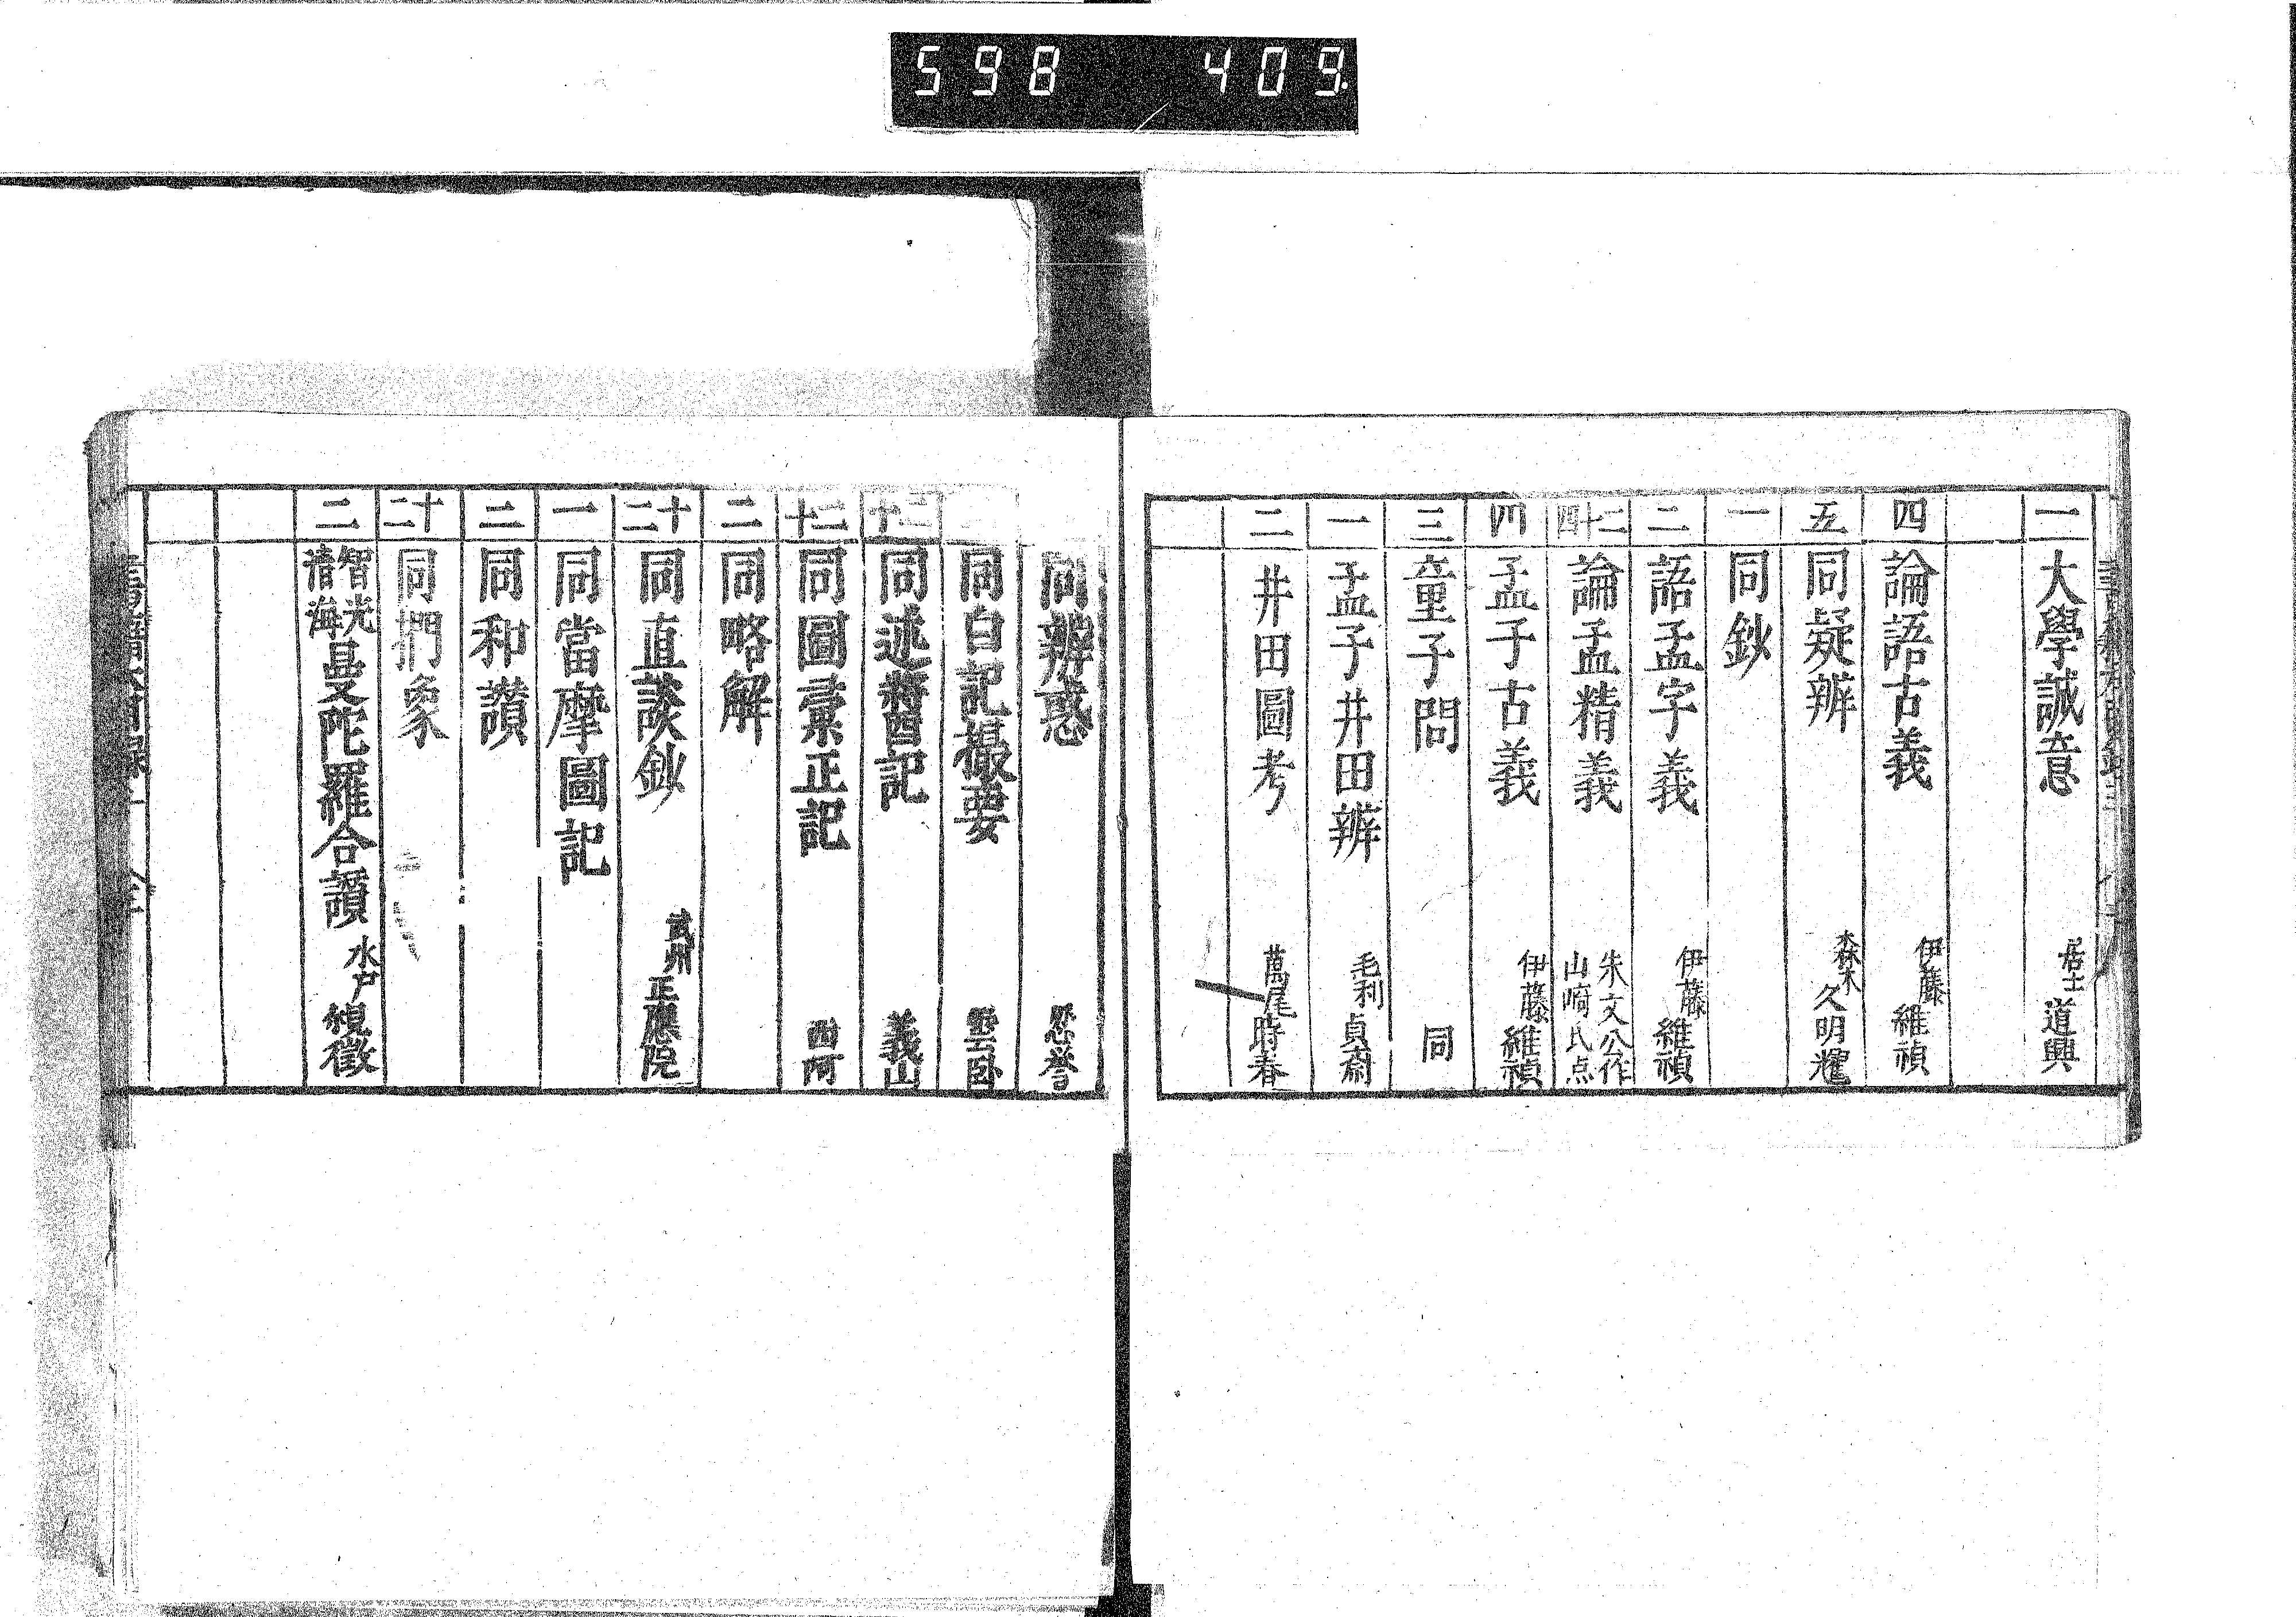 598 409
一 大學誠意 居士 道興
四 論語古義 伊藤 維禎
五 同疑辨 森木 久明燿
一 同鈔
二 語孟字義 伊藤 維禎
二十四 論孟精義 朱文公作 山崎氏点
四 孟子古義 伊藤 維禎
三 童子問 同
一 孟子井田辨 毛利 貞齋
二 井田圖考 萬尾 時春
同辨惑 愍誉
同白記撮要 雲卧
同述奬記 義山
二十 同圖彙正記 酉阿
二 同略解
十二 同直談鈔 武州 正應院
一 同當摩圖記
二 同和讚
十二 同捫象
二 智光 清海 曼陀羅合讚 水戶 覙徵